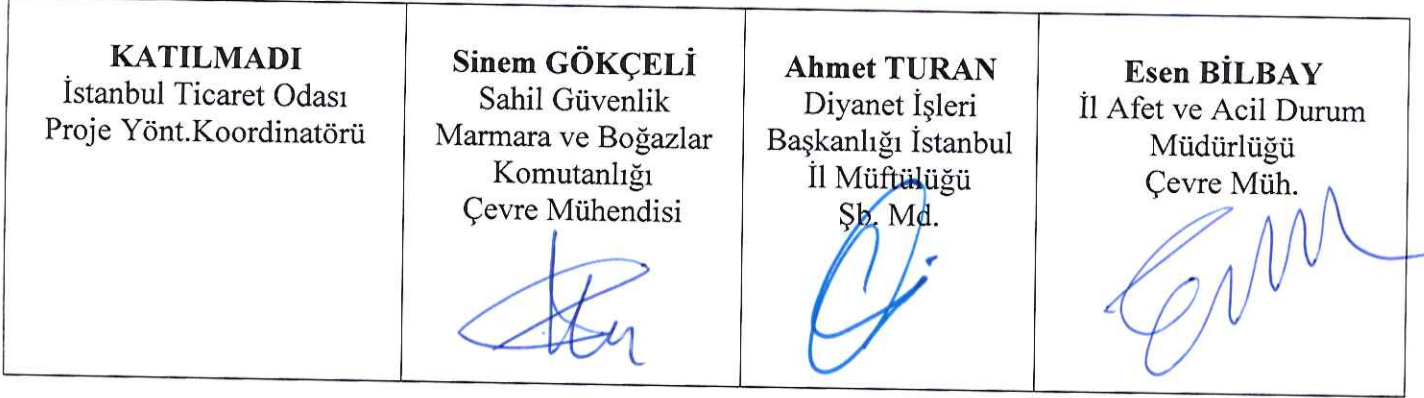 KATILMADI
İstanbul Ticaret Odası
Proje Yönt.Koordinatörü
Sinem GÖKÇELİ
Sahil Güvenlik
Marmara ve Boğazlar
Komutanlığı
Çevre Mühendisi
Ahmet TURAN
Diyanet İşleri
Başkanlığı İstanbul
İl Müftülüğü
Şb. Md.
Esen BİLBAY
İl Afet ve Acil Durum
Müdürlüğü
Çevre Müh.